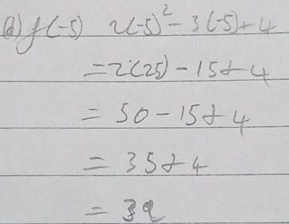 (d) f(-5) 2(-5)² - 3(-5) + 4
= 2(25) - 15 + 4
= 50 - 15 + 4
= 35 + 4
= 39